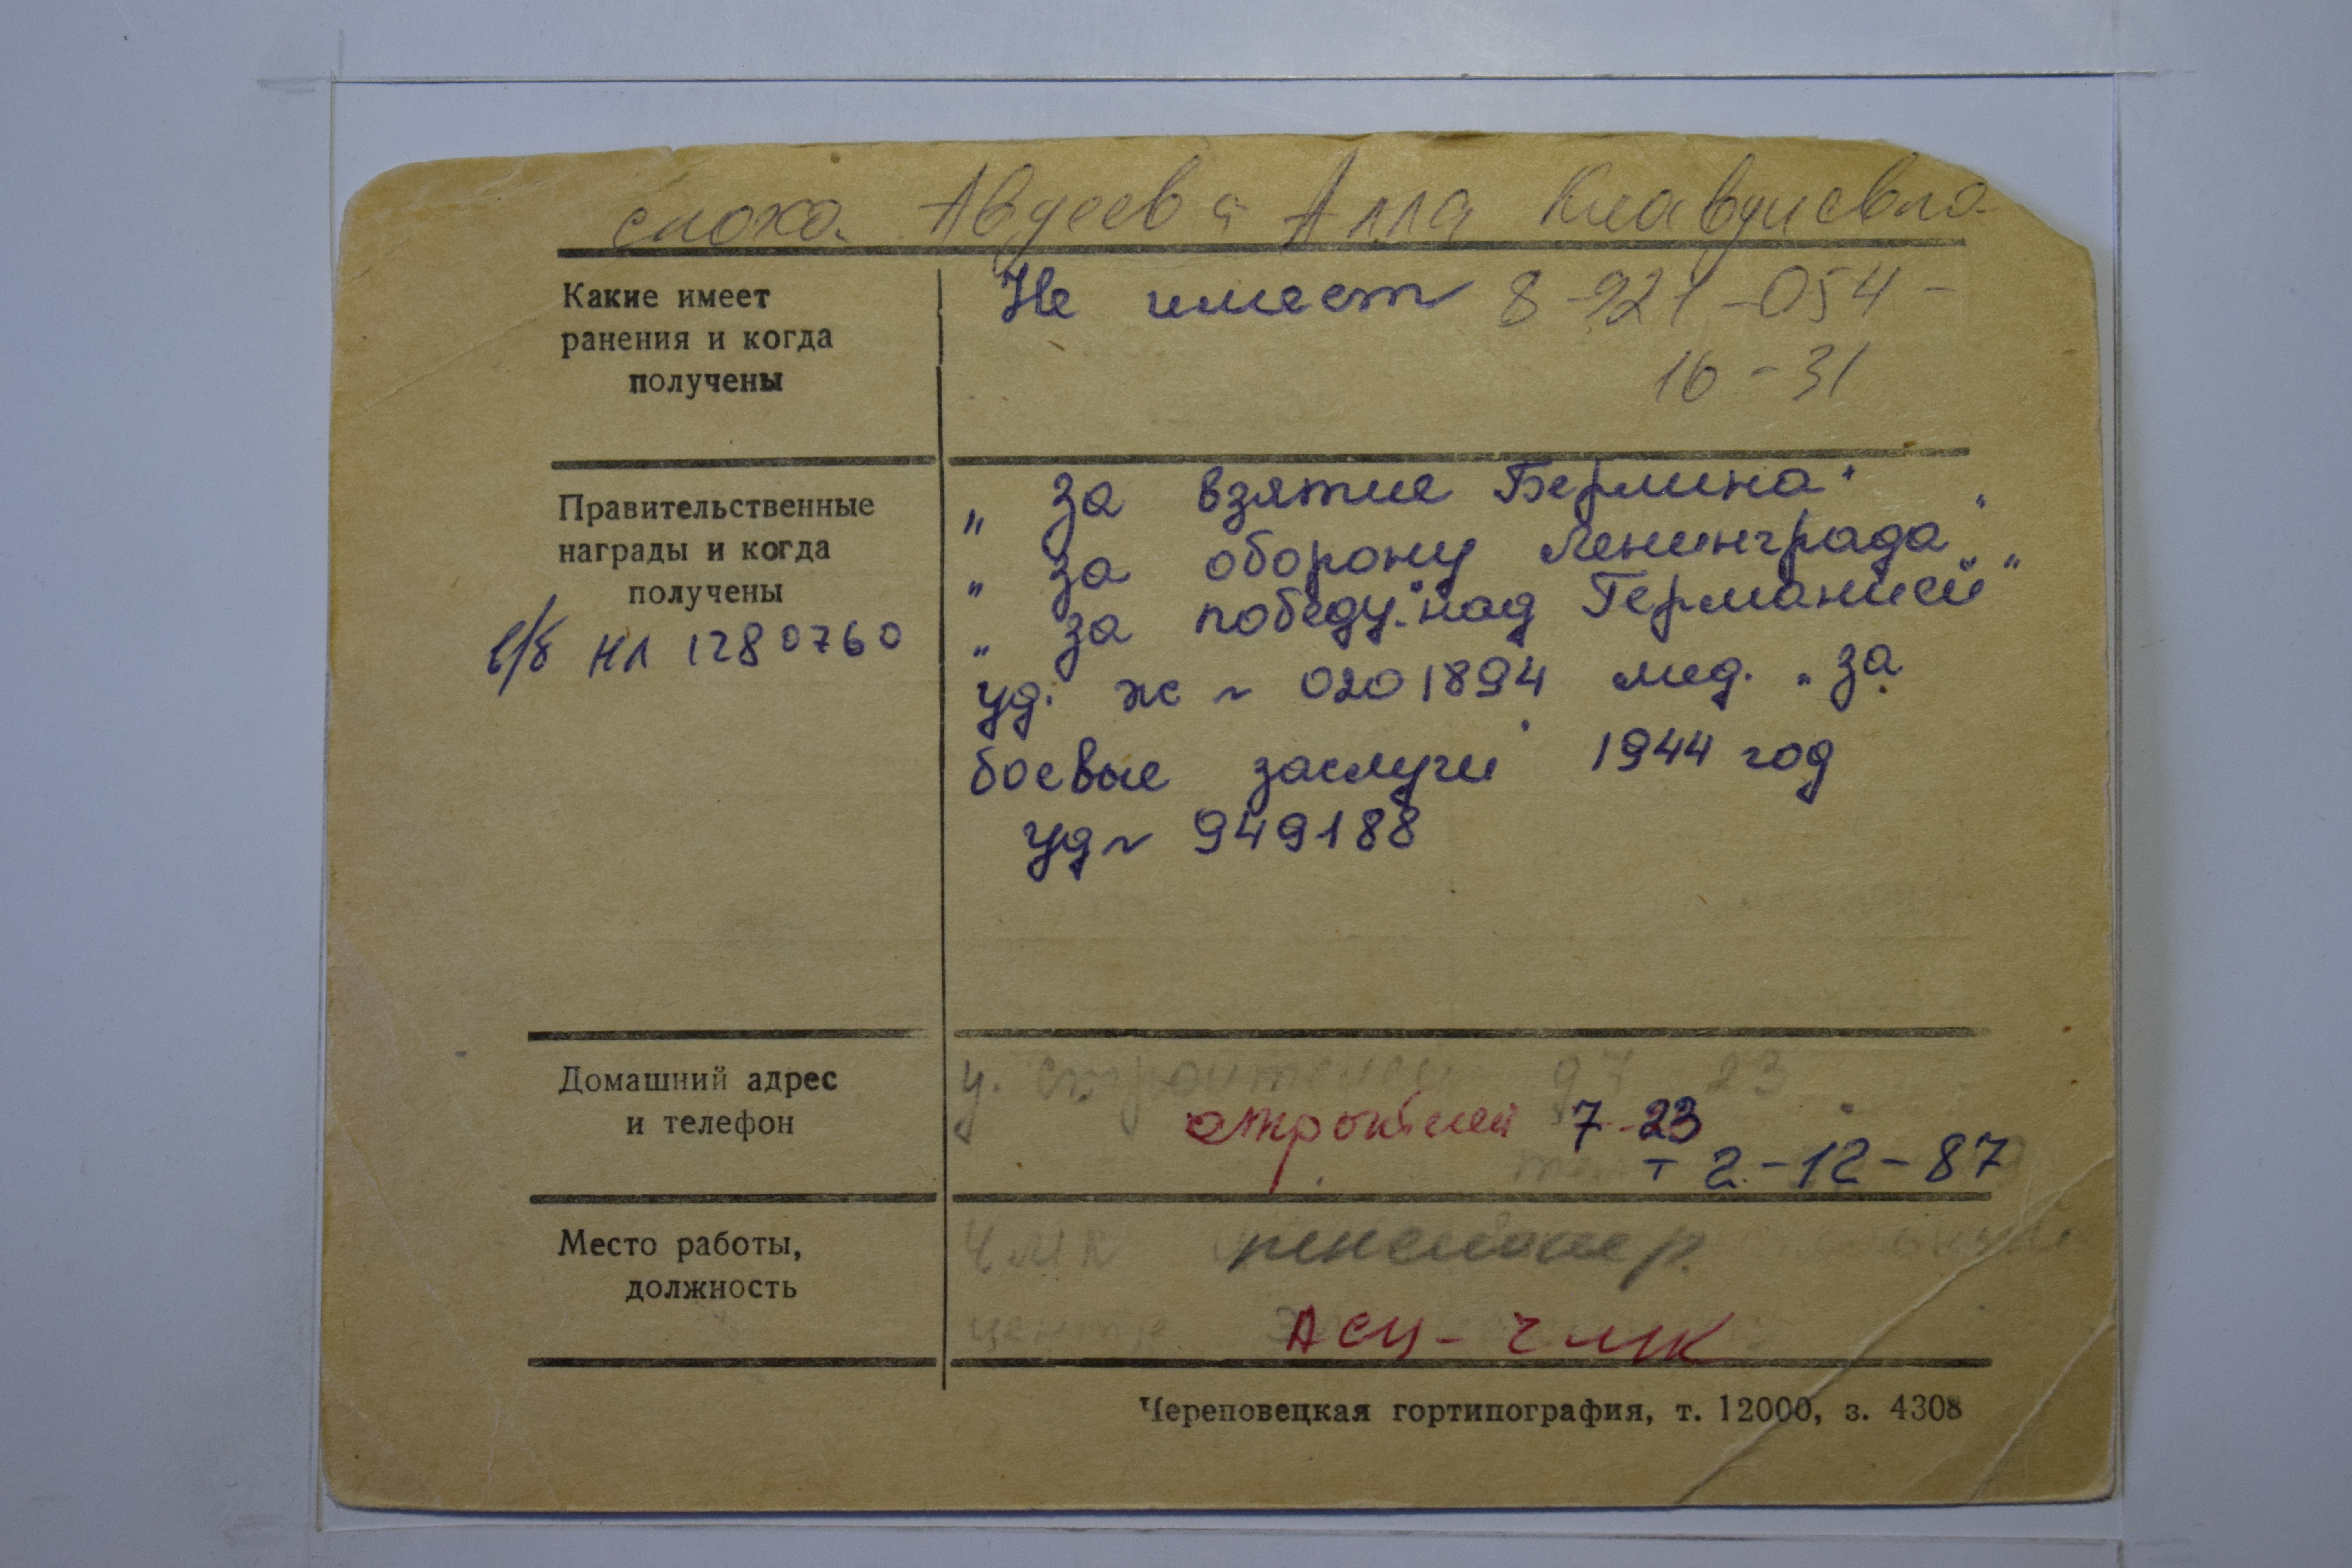 сноха Авдеева Алла Клавдиевна
Какие имеет
ранения и когда
получены
Не имеет 8-921-054-
16-31
Правительственные
награды и когда
получены
в/б НЛ 1280760
„ За взятие Берлина"
„ За оборону Ленинграда"
„ За победу" над Германией"
уд. Ж ~ 0201894 мед. „ За
боевые заслуги" 1944 год
уд ~ 949188
Домашний адрес
и телефон
у. Строителей 97 23
строителей 7-23
т 2-12-87
Место работы,
должность
ЧМК пенсионер
центр
АСЦ-ЧМК
Череповецкая гортипография, т. 12000, з. 4308